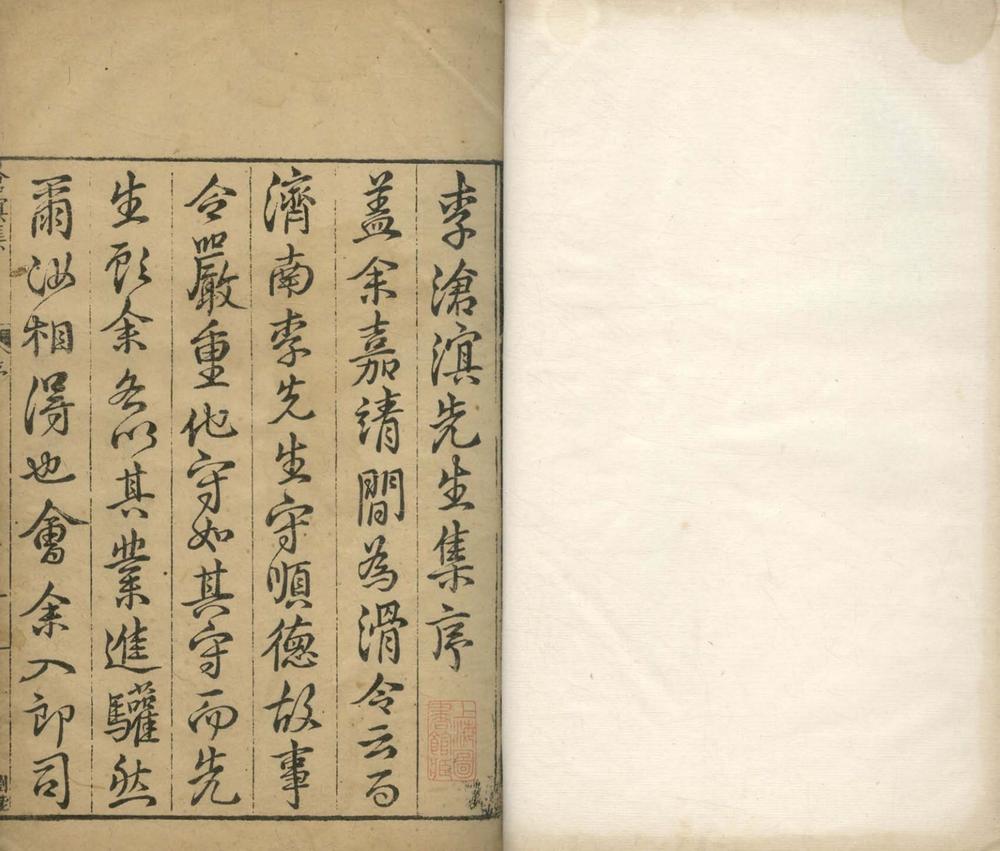 李滄溟先生集序
蓋余嘉靖間為滑令云而
濟南李先生守順德故事
令嚴重他守如其守而先
生顧余各以其業進驩然
爾汝相得也會余入郎司
上海圖書館藏